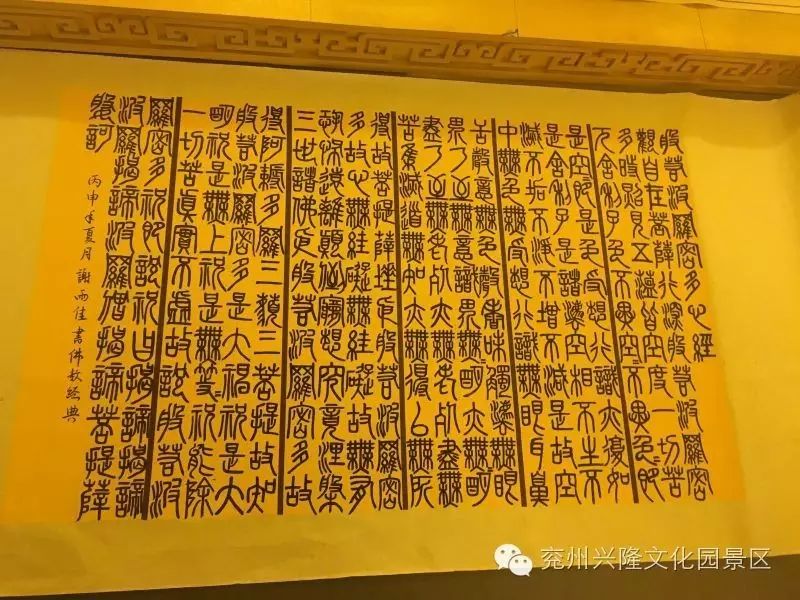 般若波羅密多心經
觀自在菩薩行深般若波羅密
多時照見五蘊皆空度一切苦
厄舍利子色不異空空不異色色即
是空空即是色受想行識亦復如
是舍利子是諸法空相不生不
滅不垢不淨不增不減是故空
中無色無受想行識無眼耳鼻
舌身意無色聲香味觸法無眼
界乃至無意識界無無明亦無無明
盡乃至無老死亦無老死盡無
苦集滅道無智亦無得以無所
得故菩提薩埵依般若波羅密
多故心無罣礙無罣礙故無有
恐怖遠離顛倒夢想究竟涅槃
三世諸佛依般若波羅密多故
得阿耨多羅三藐三菩提故知
般若波羅密多是大神咒是大
明咒是無上咒是無等等咒能除
一切苦真實不虛故說般若波
羅密多咒即說咒曰揭諦揭諦
波羅揭諦波羅僧揭諦菩提薩
婆訶
丙申年夏月謝雨佳書佛教經典
兖州兴隆文化园景区